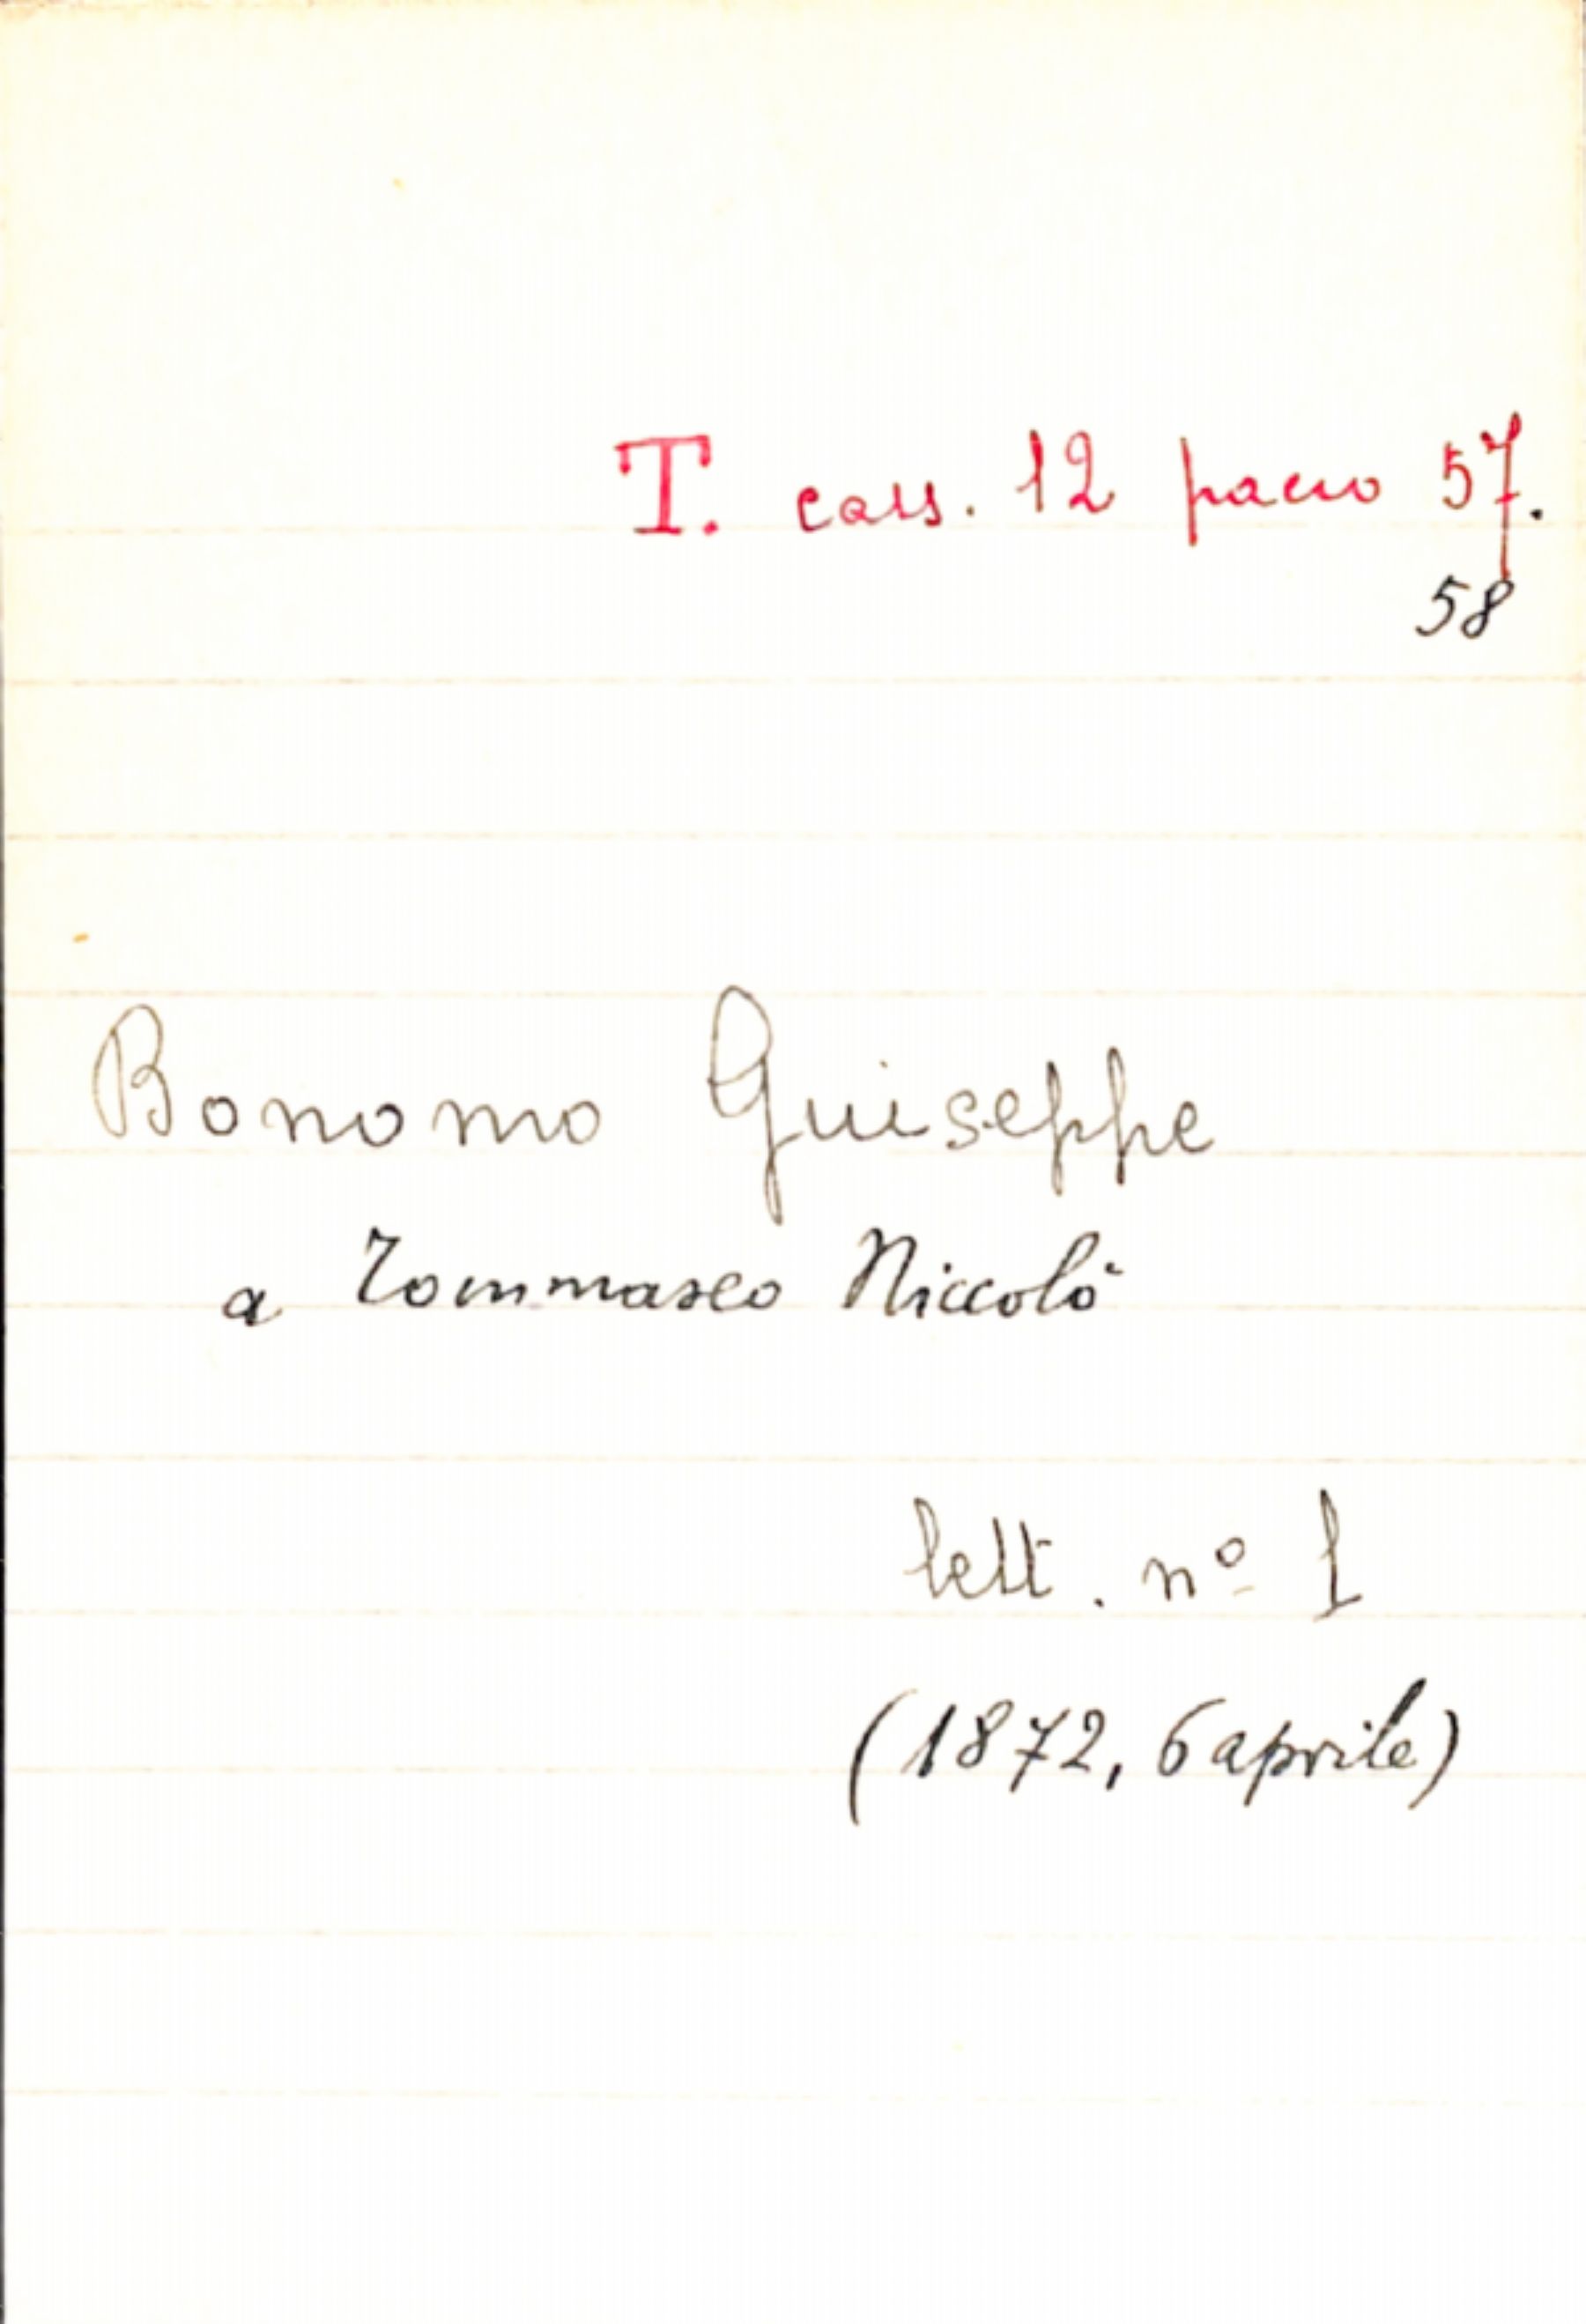 T. cass. 12 pacco 57.
58
Bonomo Giuseppe
a Tommaseo Niccolò
lett. nº 1
(1872, 6 aprile)